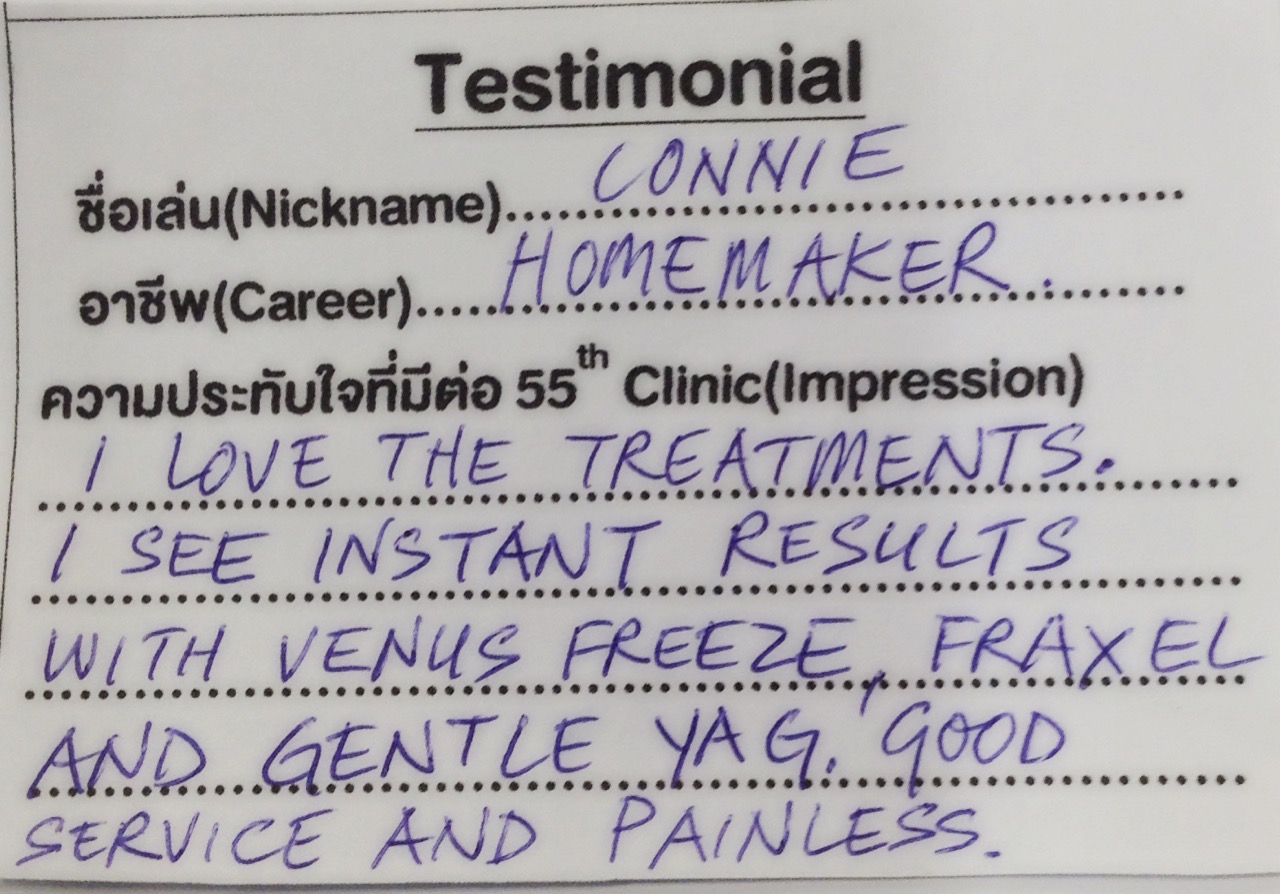 Testimonial
ชื่อเล่น(Nickname)..........CONNIE..........
อาชีพ(Career)..........HOMEMAKER...........
ความประทับใจที่มีต่อ 55th Clinic(Impression)
I LOVE THE TREATMENTS.
I SEE INSTANT RESULTS
WITH VENUS FREEZE, FRAXEL
AND GENTLE YAG. GOOD
SERVICE AND PAINLESS.